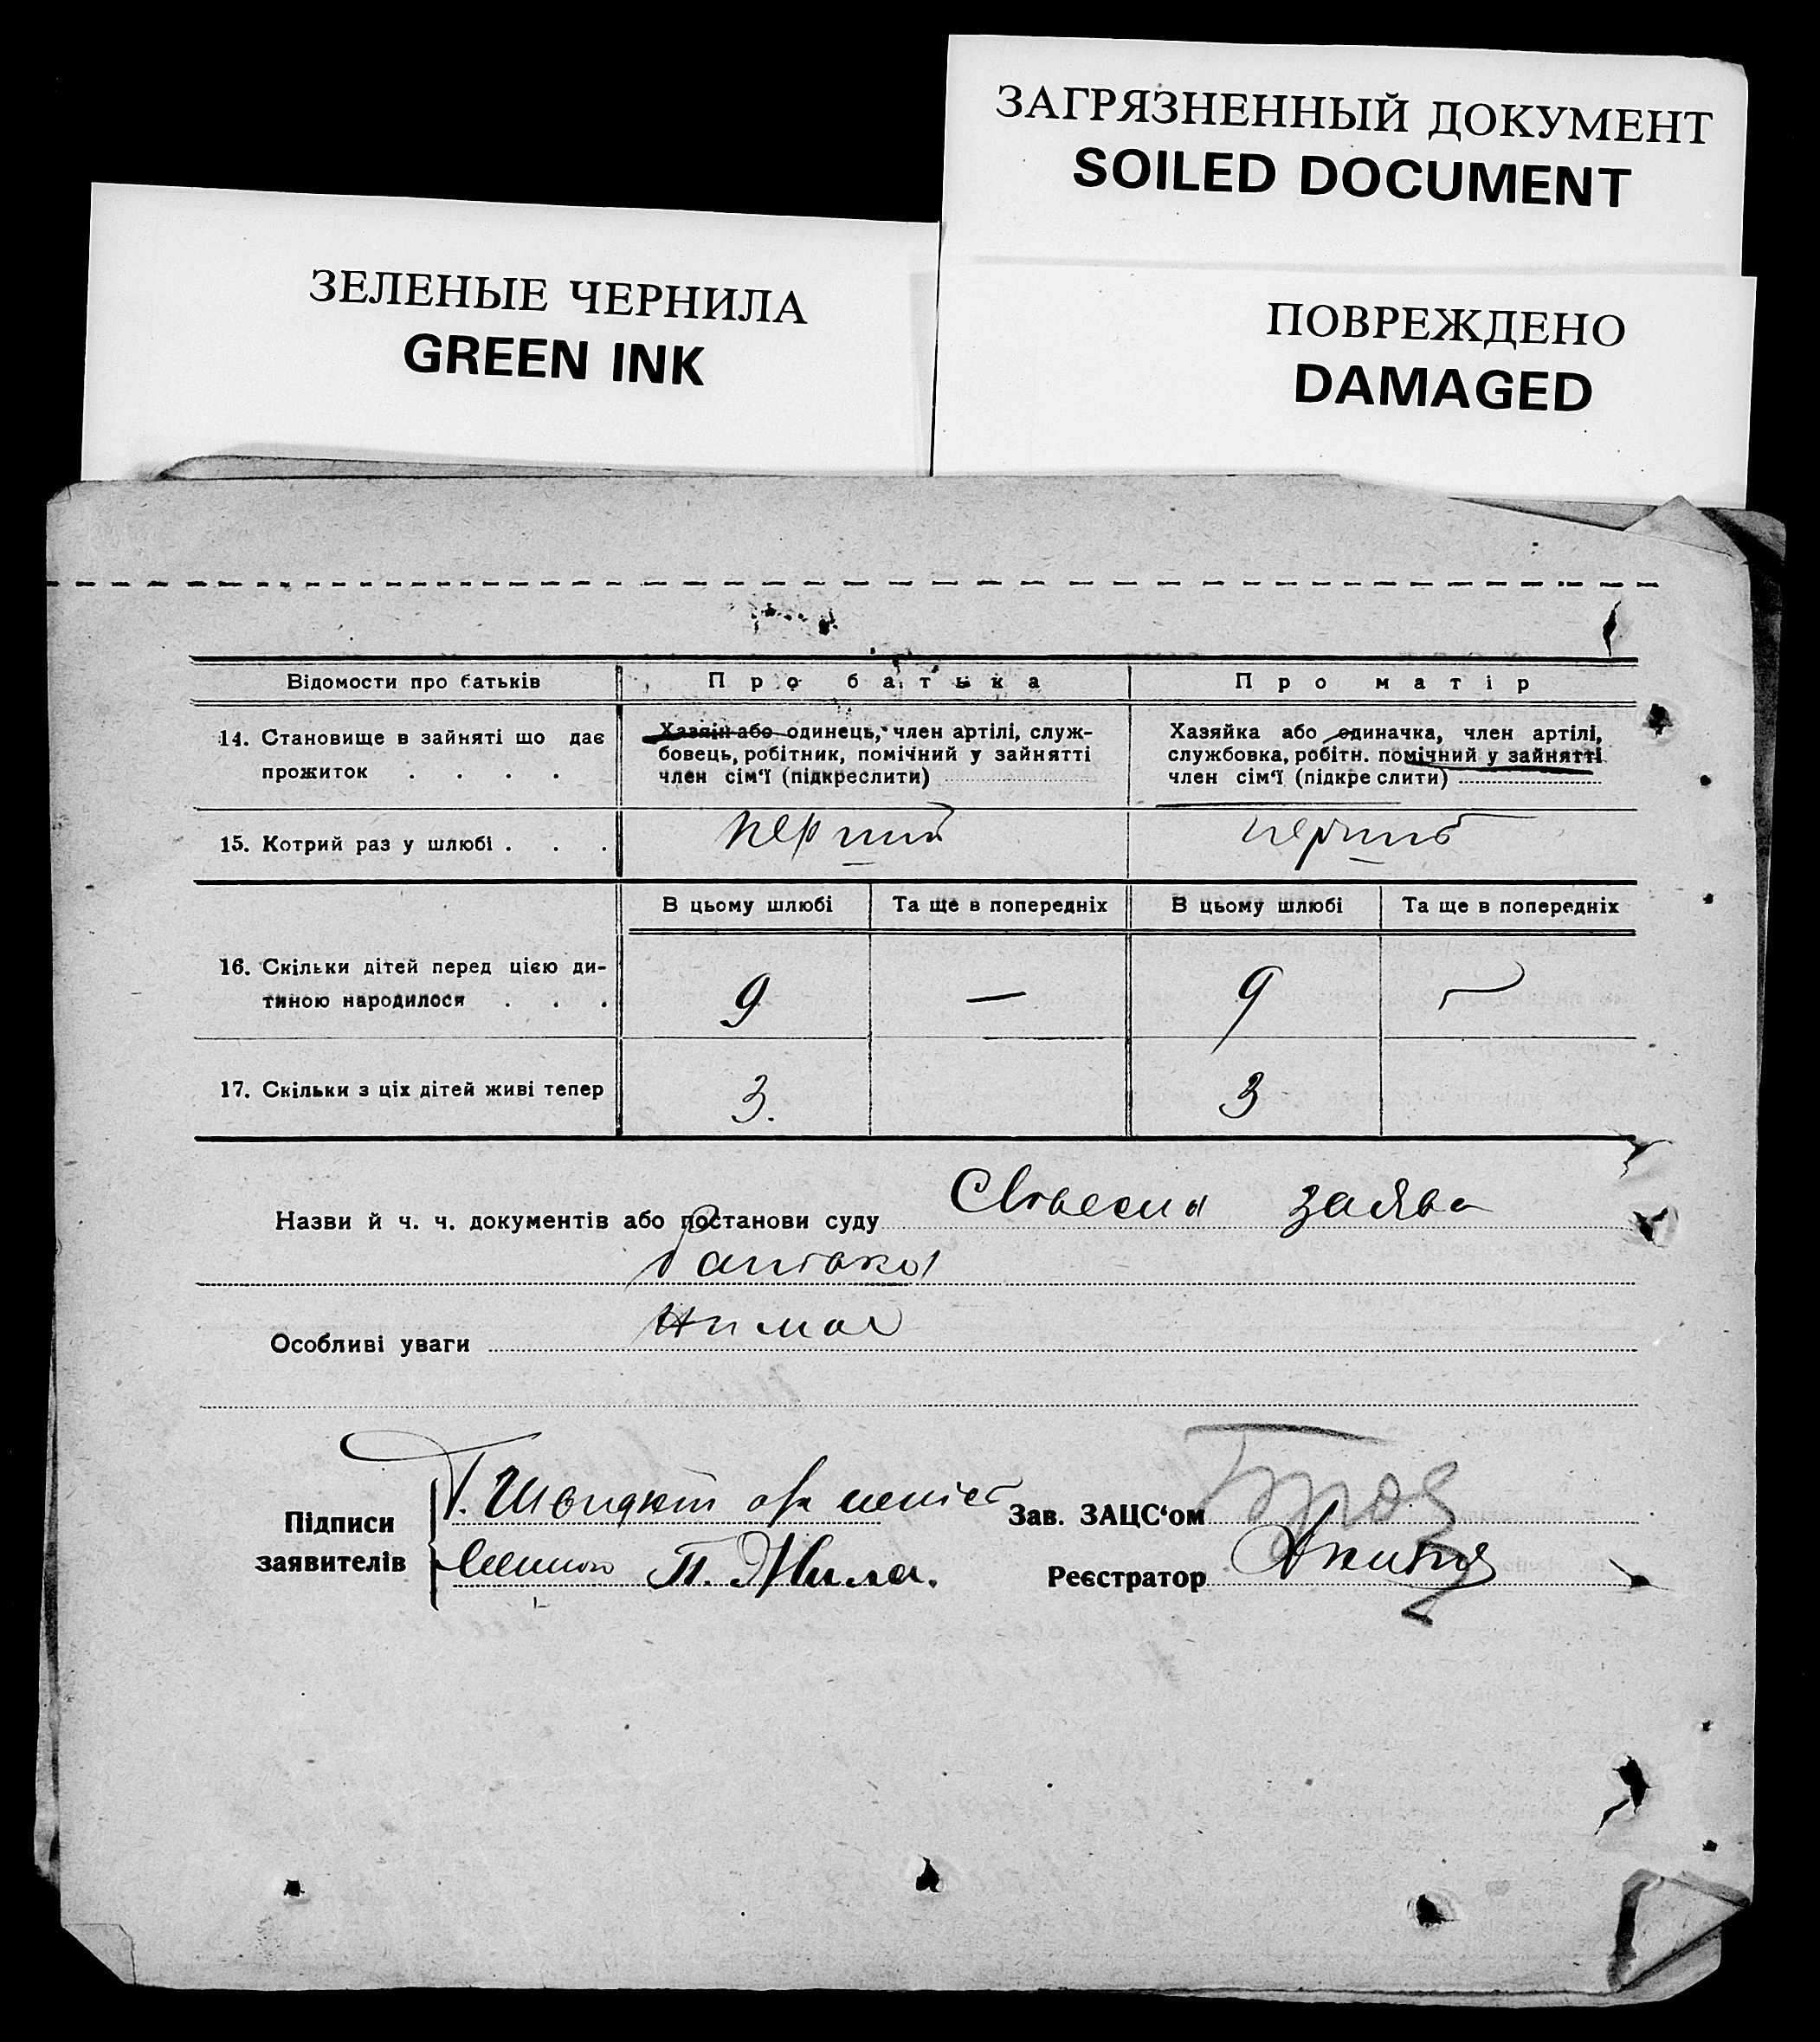 ЗАГРЯЗНЕННЫЙ ДОКУМЕНТ
SOILED DOCUMENT
ЗЕЛЕНЫЕ ЧЕРНИЛА
GREEN INK
ПОВРЕЖДЕНО
DAMAGED
Відомости про батьків
Про батька
Про матір
14. Становище в зайняті що дає
прожиток . . . .
Хазяїн або одинець, член артілі, служ-
бовець, робітник, помічний у зайнятті
член сім'ї (підкреслити)
Хазяйка або одиначка, член артілі,
службовка, робітн. помічний у зайнятті
член сім'ї (підкре слити)
15. Котрий раз у шлюбі . . .
перший
перший
В цьому шлюбі
Та ще в попередніх
В цьому шлюбі
Та ще в попередніх
16. Скільки дітей перед цією ди-
тиною народилося . . .
9
—
9
—
17. Скільки з ціх дітей живі тепер
3.
3
Назви й ч. ч. документів або постанови суду Словесна заява
батька
Особливі уваги
Підписи
заявителів
П. Жила.
Зав. ЗАЦС'ом
Реєстратор